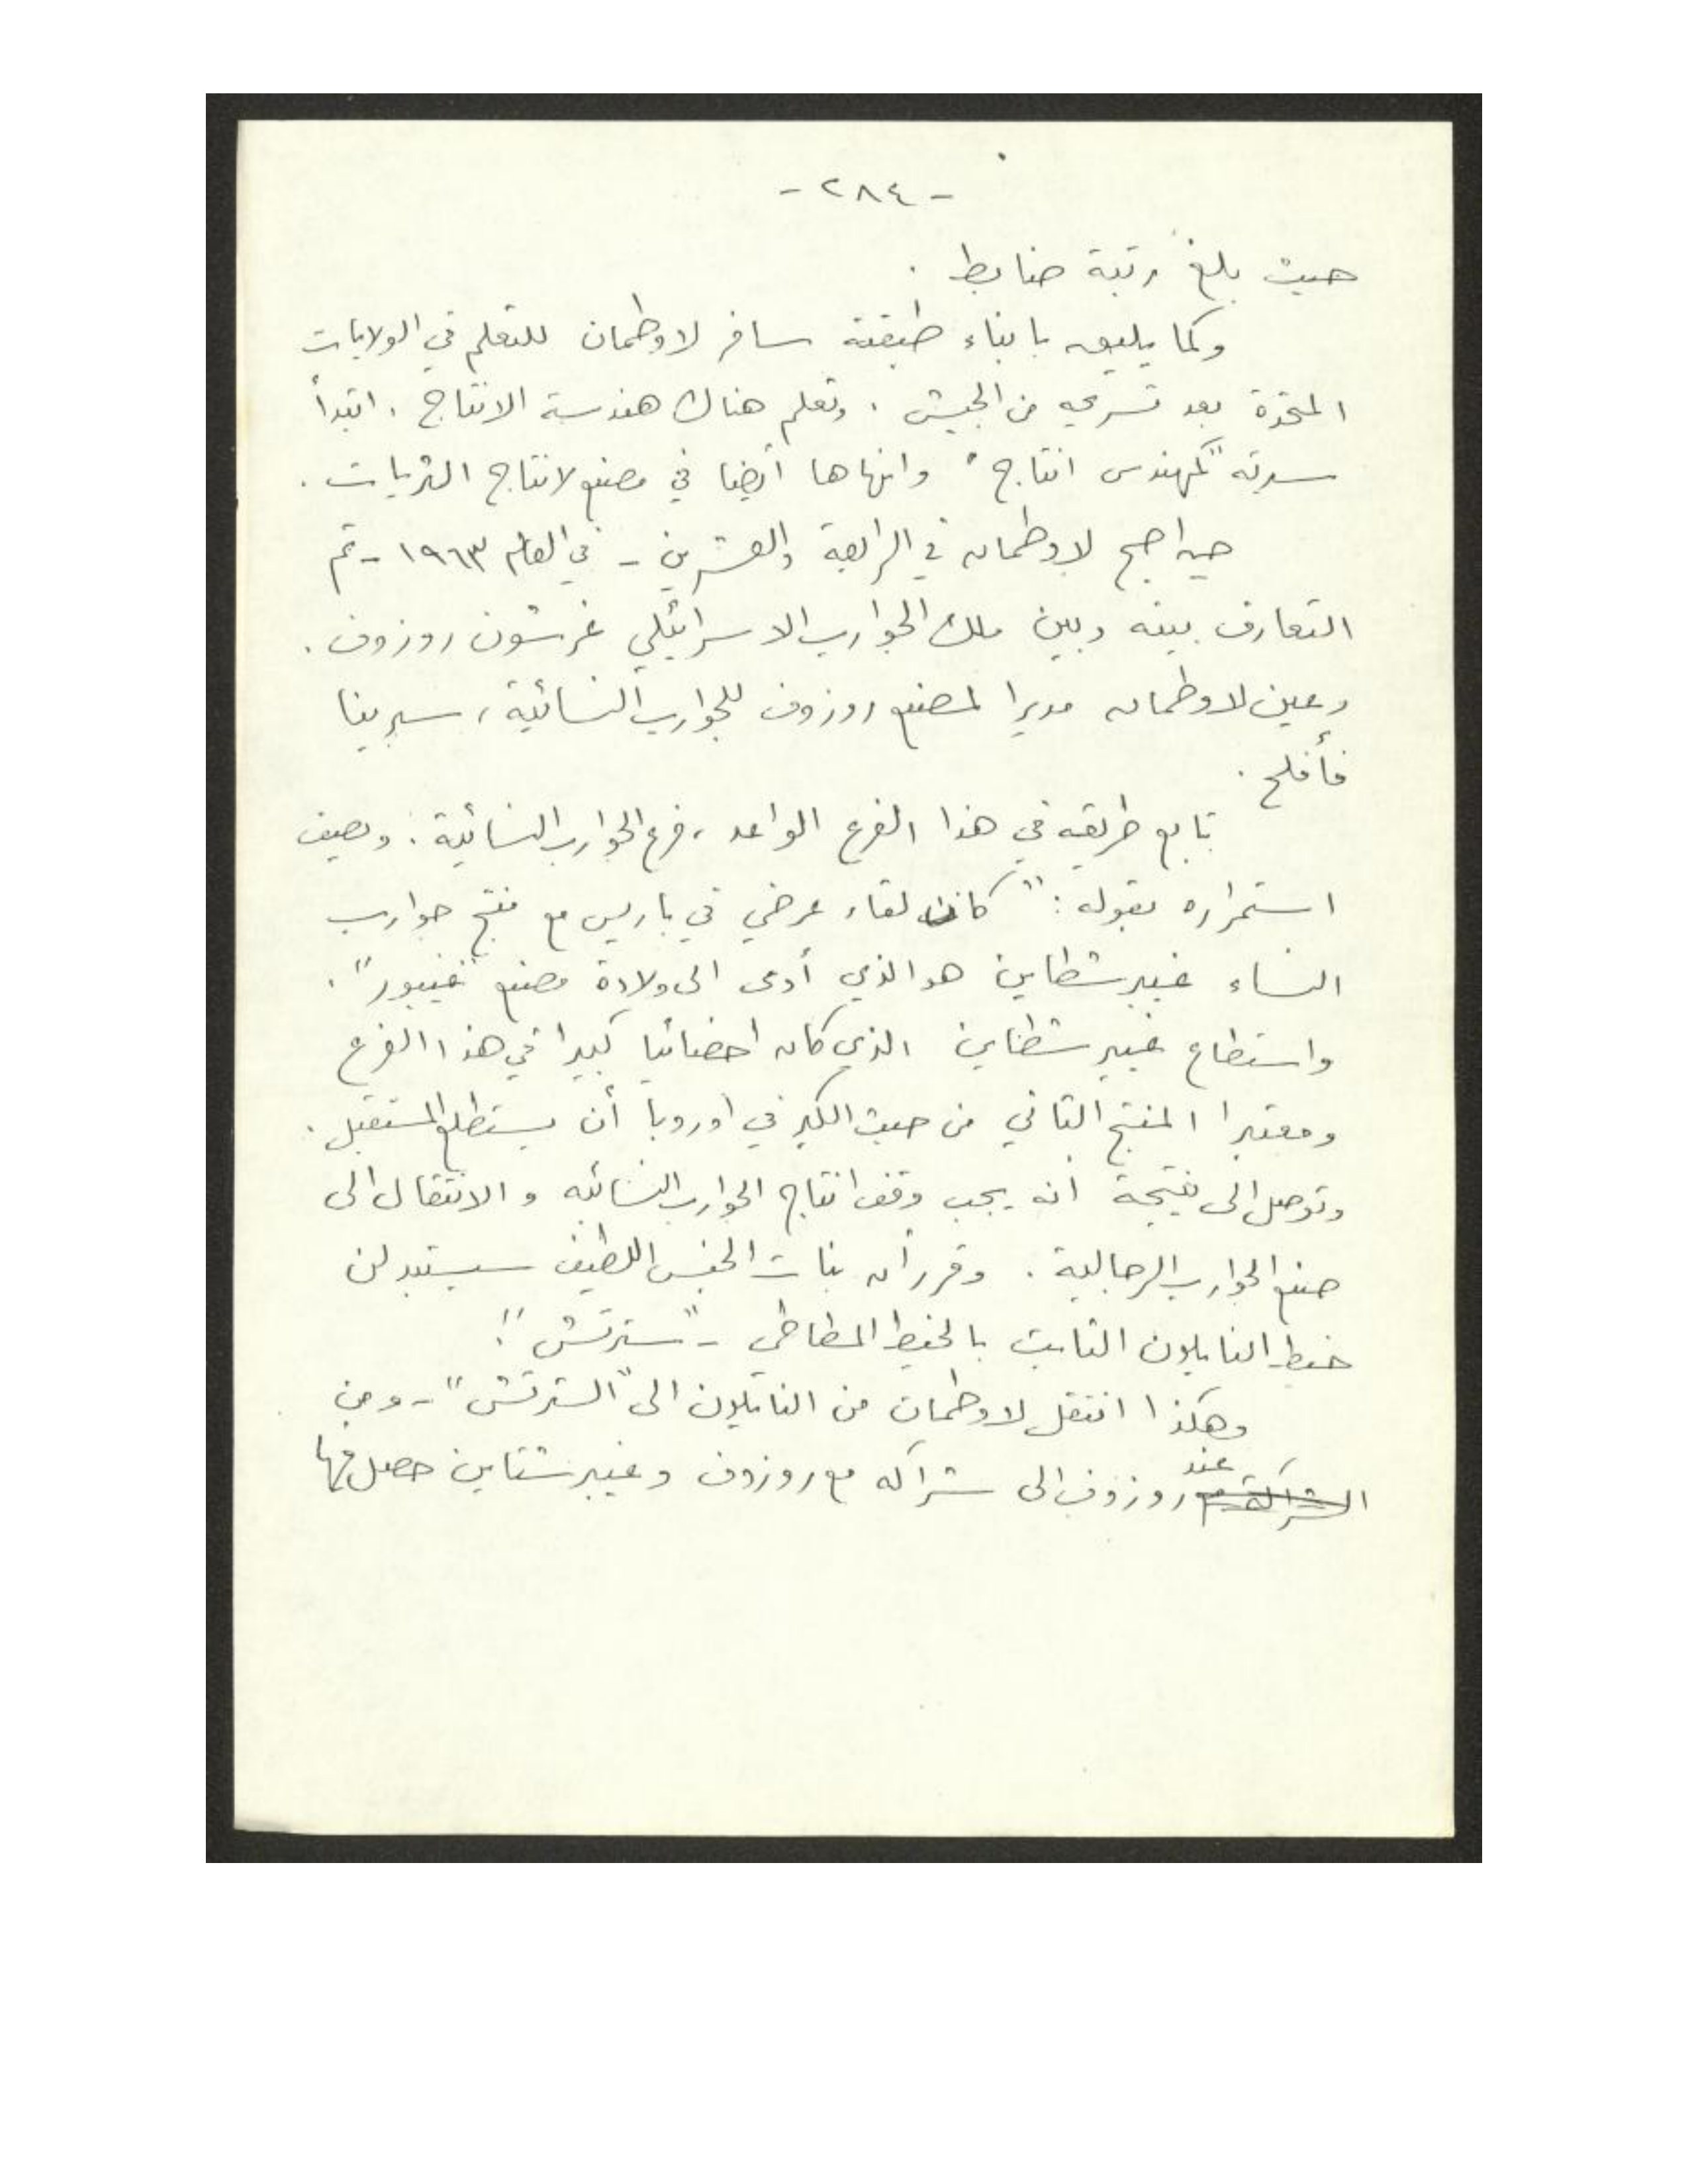 - ٢٨٤ -
حيث بلغ رتبة ضابط .
وكما يليق بابناء طبقته سافر لاوطمان للتعلم في الولايات
المتحدة بعد تسريحه من الجيش . وتعلم هناك هندسة الانتاج . ابتدأ
سيرته "كمهندس انتاج" وانهاها أيضا في مصنع لانتاج الثريات .
حين اصبح لاوطمان في الرابعة والعشرين - في العام ١٩٦٣ - تم
التعارف بينه وبين ملك الجوارب الاسرائيلي غرشون روزوف .
وعين لاوطمان مديرا لمصنع روزوف للجوارب النسائية ، سبرينا
فأفلح .
تابع طريقه في هذا الفرع الواعد ، فرع الجوارب النسائية . ويصف
استمراره بقوله : " كان لقاء عرضي في باريس مع منتج جوارب
النساء غيبرشطاين هو الذي أدى الى ولادة مصنع "غيبور" .
واستطاع غيبرشطاين الذي كان اخصائيا كبيرا في هذا الفرع
ومعتبرا المنتج الثاني من حيث الكبر في اوروبا أن يستطلع المستقبل .
وتوصل الى نتيجة انه يجب وقف انتاج الجوارب النسائيه و الانتقال الى
صنع الجوارب الرجالية . وقرر أن بنات الجنس اللطيف سيستبدلن
خيط النايلون الثابت بالخيط المطاطي - "سترتش" .
وهكذا انتقل لاوطمان من النايلون الى "السترتش" - ومن
الشراكة مع عند روزوف الى شراكه مع روزوف وغيبرشتاين حصل فيها